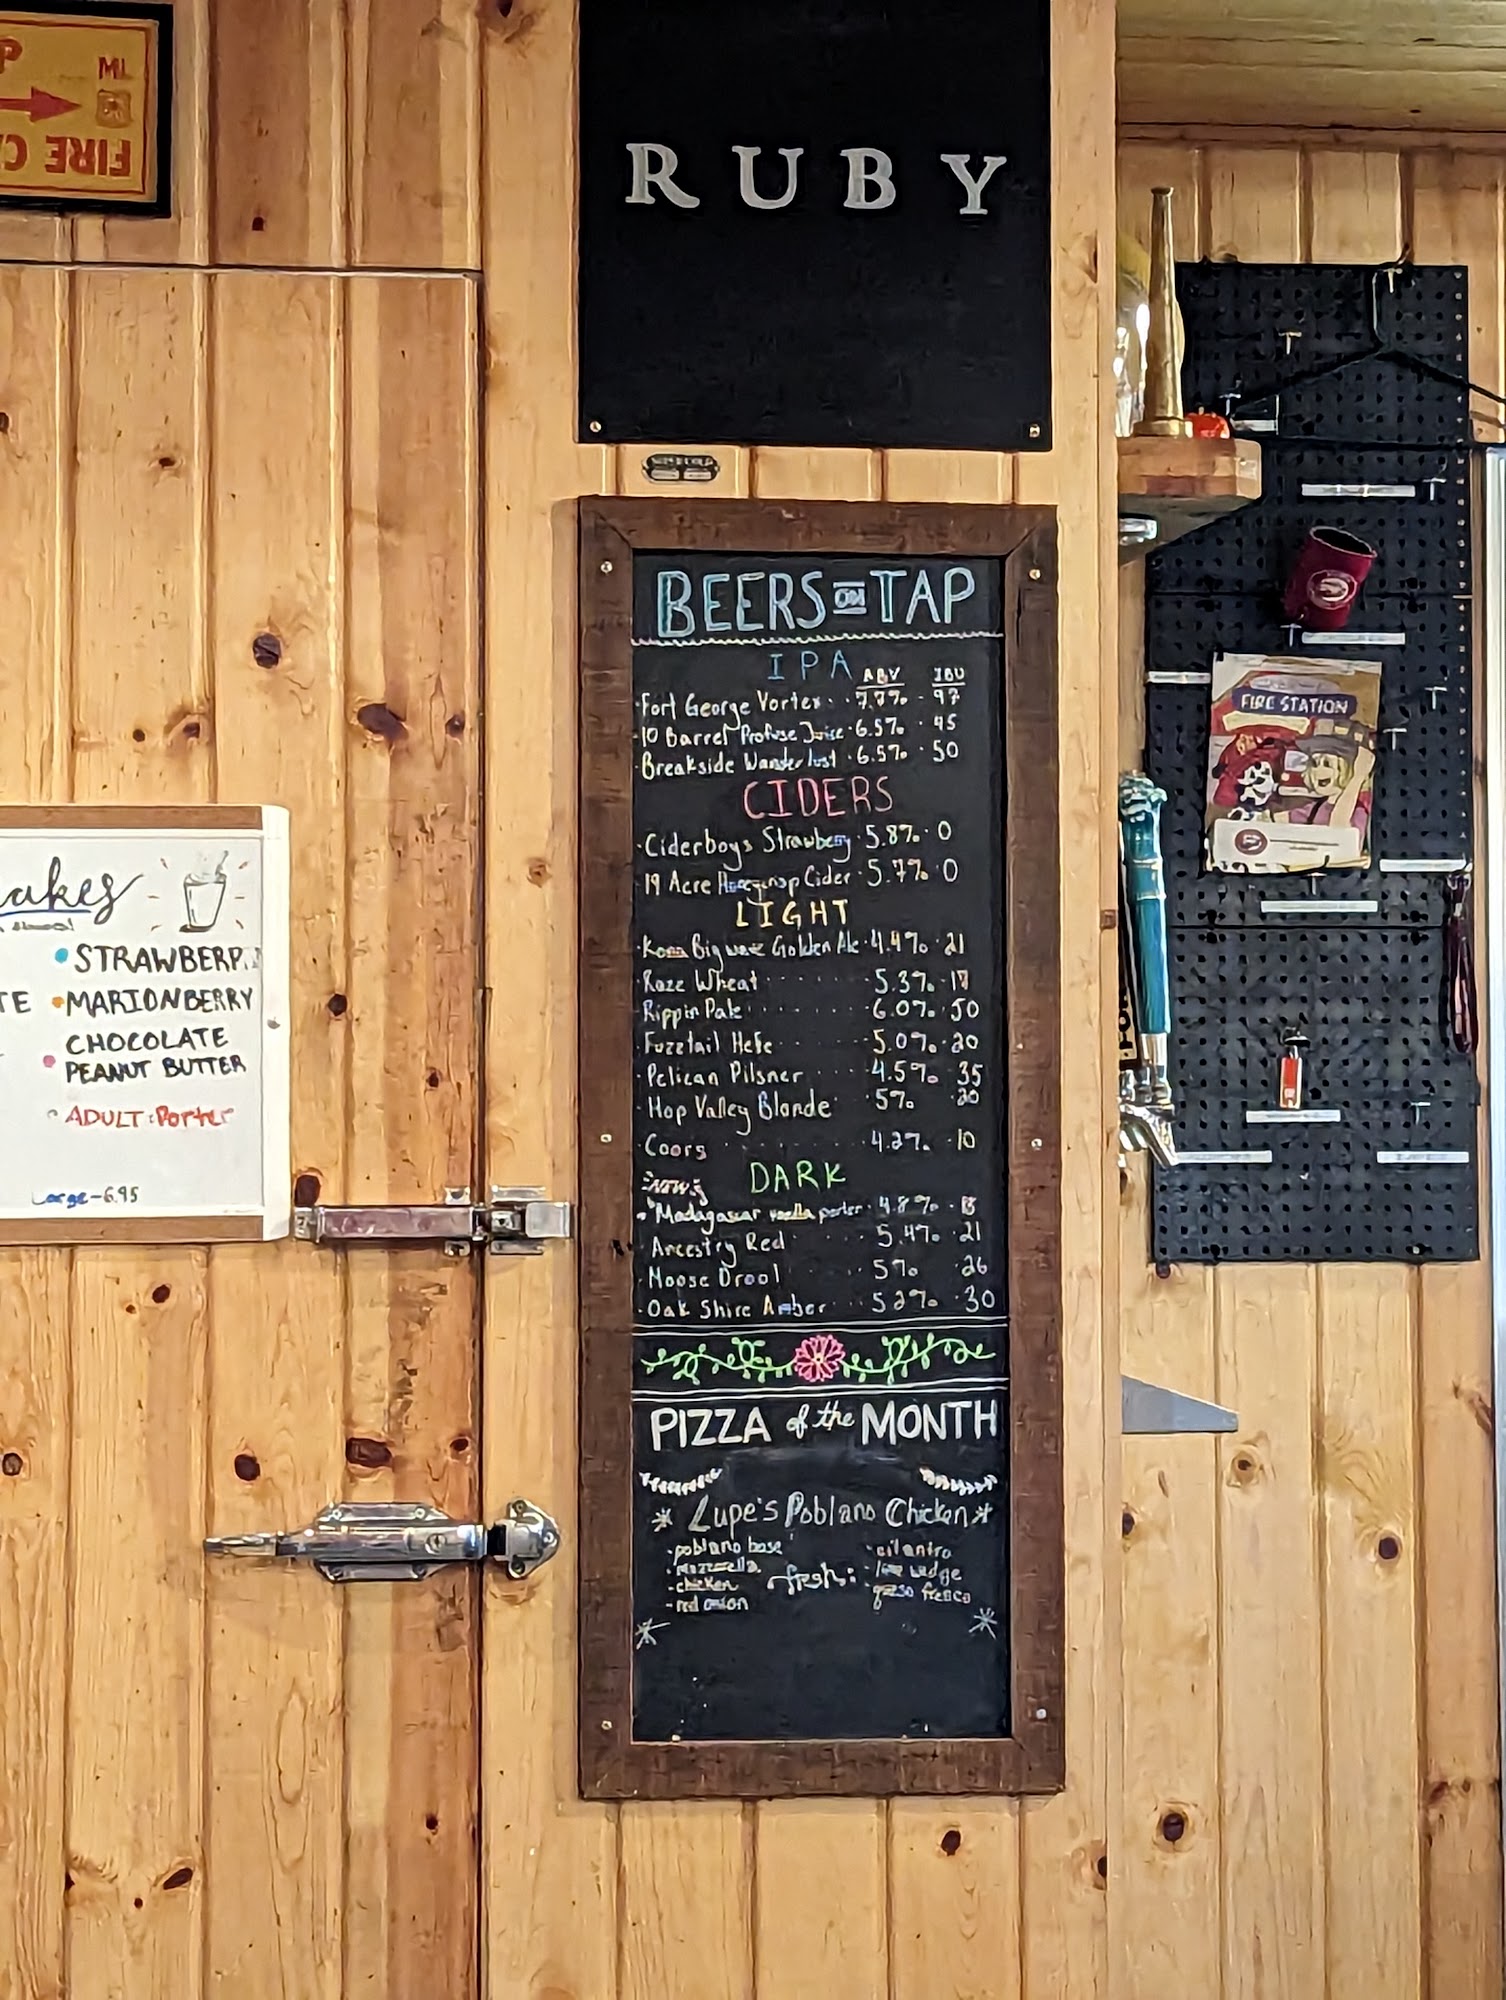 MI
FIRE
RUBY
BEERS ON TAP
IPA ABV IBU
Fort George Vortex 7.7% 97
10 Barrel Profuse Juice 6.5% 45
Breakside Wanderlust 6.5% 50
CIDERS
Ciderboys Strawberry 5.8% 0
19 Acre Cider 5.7% 0
LIGHT
Kona Big wave Golden Ale 4.4% 21
Raze Wheat 5.3% 17
Rippin Pale 6.0% 50
Fuzztail Hefe 5.0% 20
Pelican Pilsner 4.5% 35
Hop Valley Blonde 5% 20
Coors 4.2% 10
NEW DARK
Madagascar vanilla porter 4.8%
Ancestry Red 5.4% 21
Moose Drool 5% 26
Oak Shire Amber 5.2% 30
PIZZA of the MONTH
Lupe's Poblano Chicken
poblano base
mozzarella
chicken
red onion
fresh:
cilantro
lime wedge
queso fresco
akes
STRAWBERR
TE MARIONBERRY
CHOCOLATE
PEANUT BUTTER
ADULT: Porter
Large-6.95
FIRE STATION